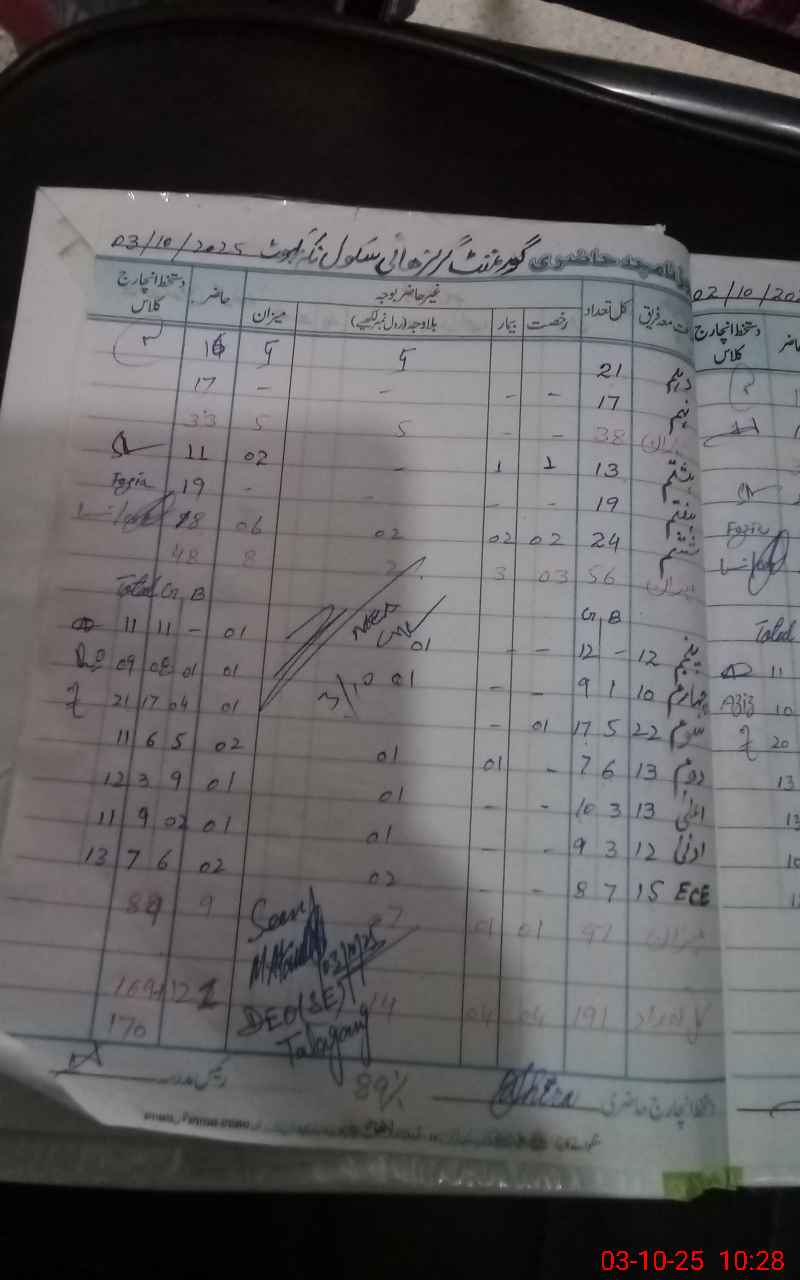 گورنمنٹ گرلز ہائی سکول 03/10/2025
کل تعداد غیر حاضر بوجہ حاضر دستخط انچارج کلاس
رخصت بیمار بلا وجہ (رول نمبر لکھیے) میزان
دہم 21 5 5 16
نہم 17 - - - - 17
میزان 38 - - 5 5 33
ہشتم 13 1 1 - 02 11
ہفتم 19 - - - - 19 Fozia
ششم 24 02 02 02 06 18
میزان 56 03 3 2 8 48
G B Total G B
پنجم 12 - 12 - - 01 01 - 11 11
چہارم 10 1 9 - - 01 01 01 08 09
سوم 22 5 17 01 - 01 04 17 21
دوم 13 6 7 - 01 01 02 5 6 11
اعلیٰ 13 3 10 - - 01 01 9 3 12
ادنیٰ 12 3 9 - - 01 01 02 9 11
ECE 15 7 8 - - 02 02 6 7 13
میزان 97 01 01 7 9 88
Seen
03/10/25
DEO(SE)
Talagang
کل تعداد 191 04 04 14
170
89%
دستخط انچارج حاضری
رئیس مدرسہ
02/10/202
دستخط انچارج کلاس
حاضر
Fozia
Total
11
Aziz 10
20
13
03-10-25 10:28